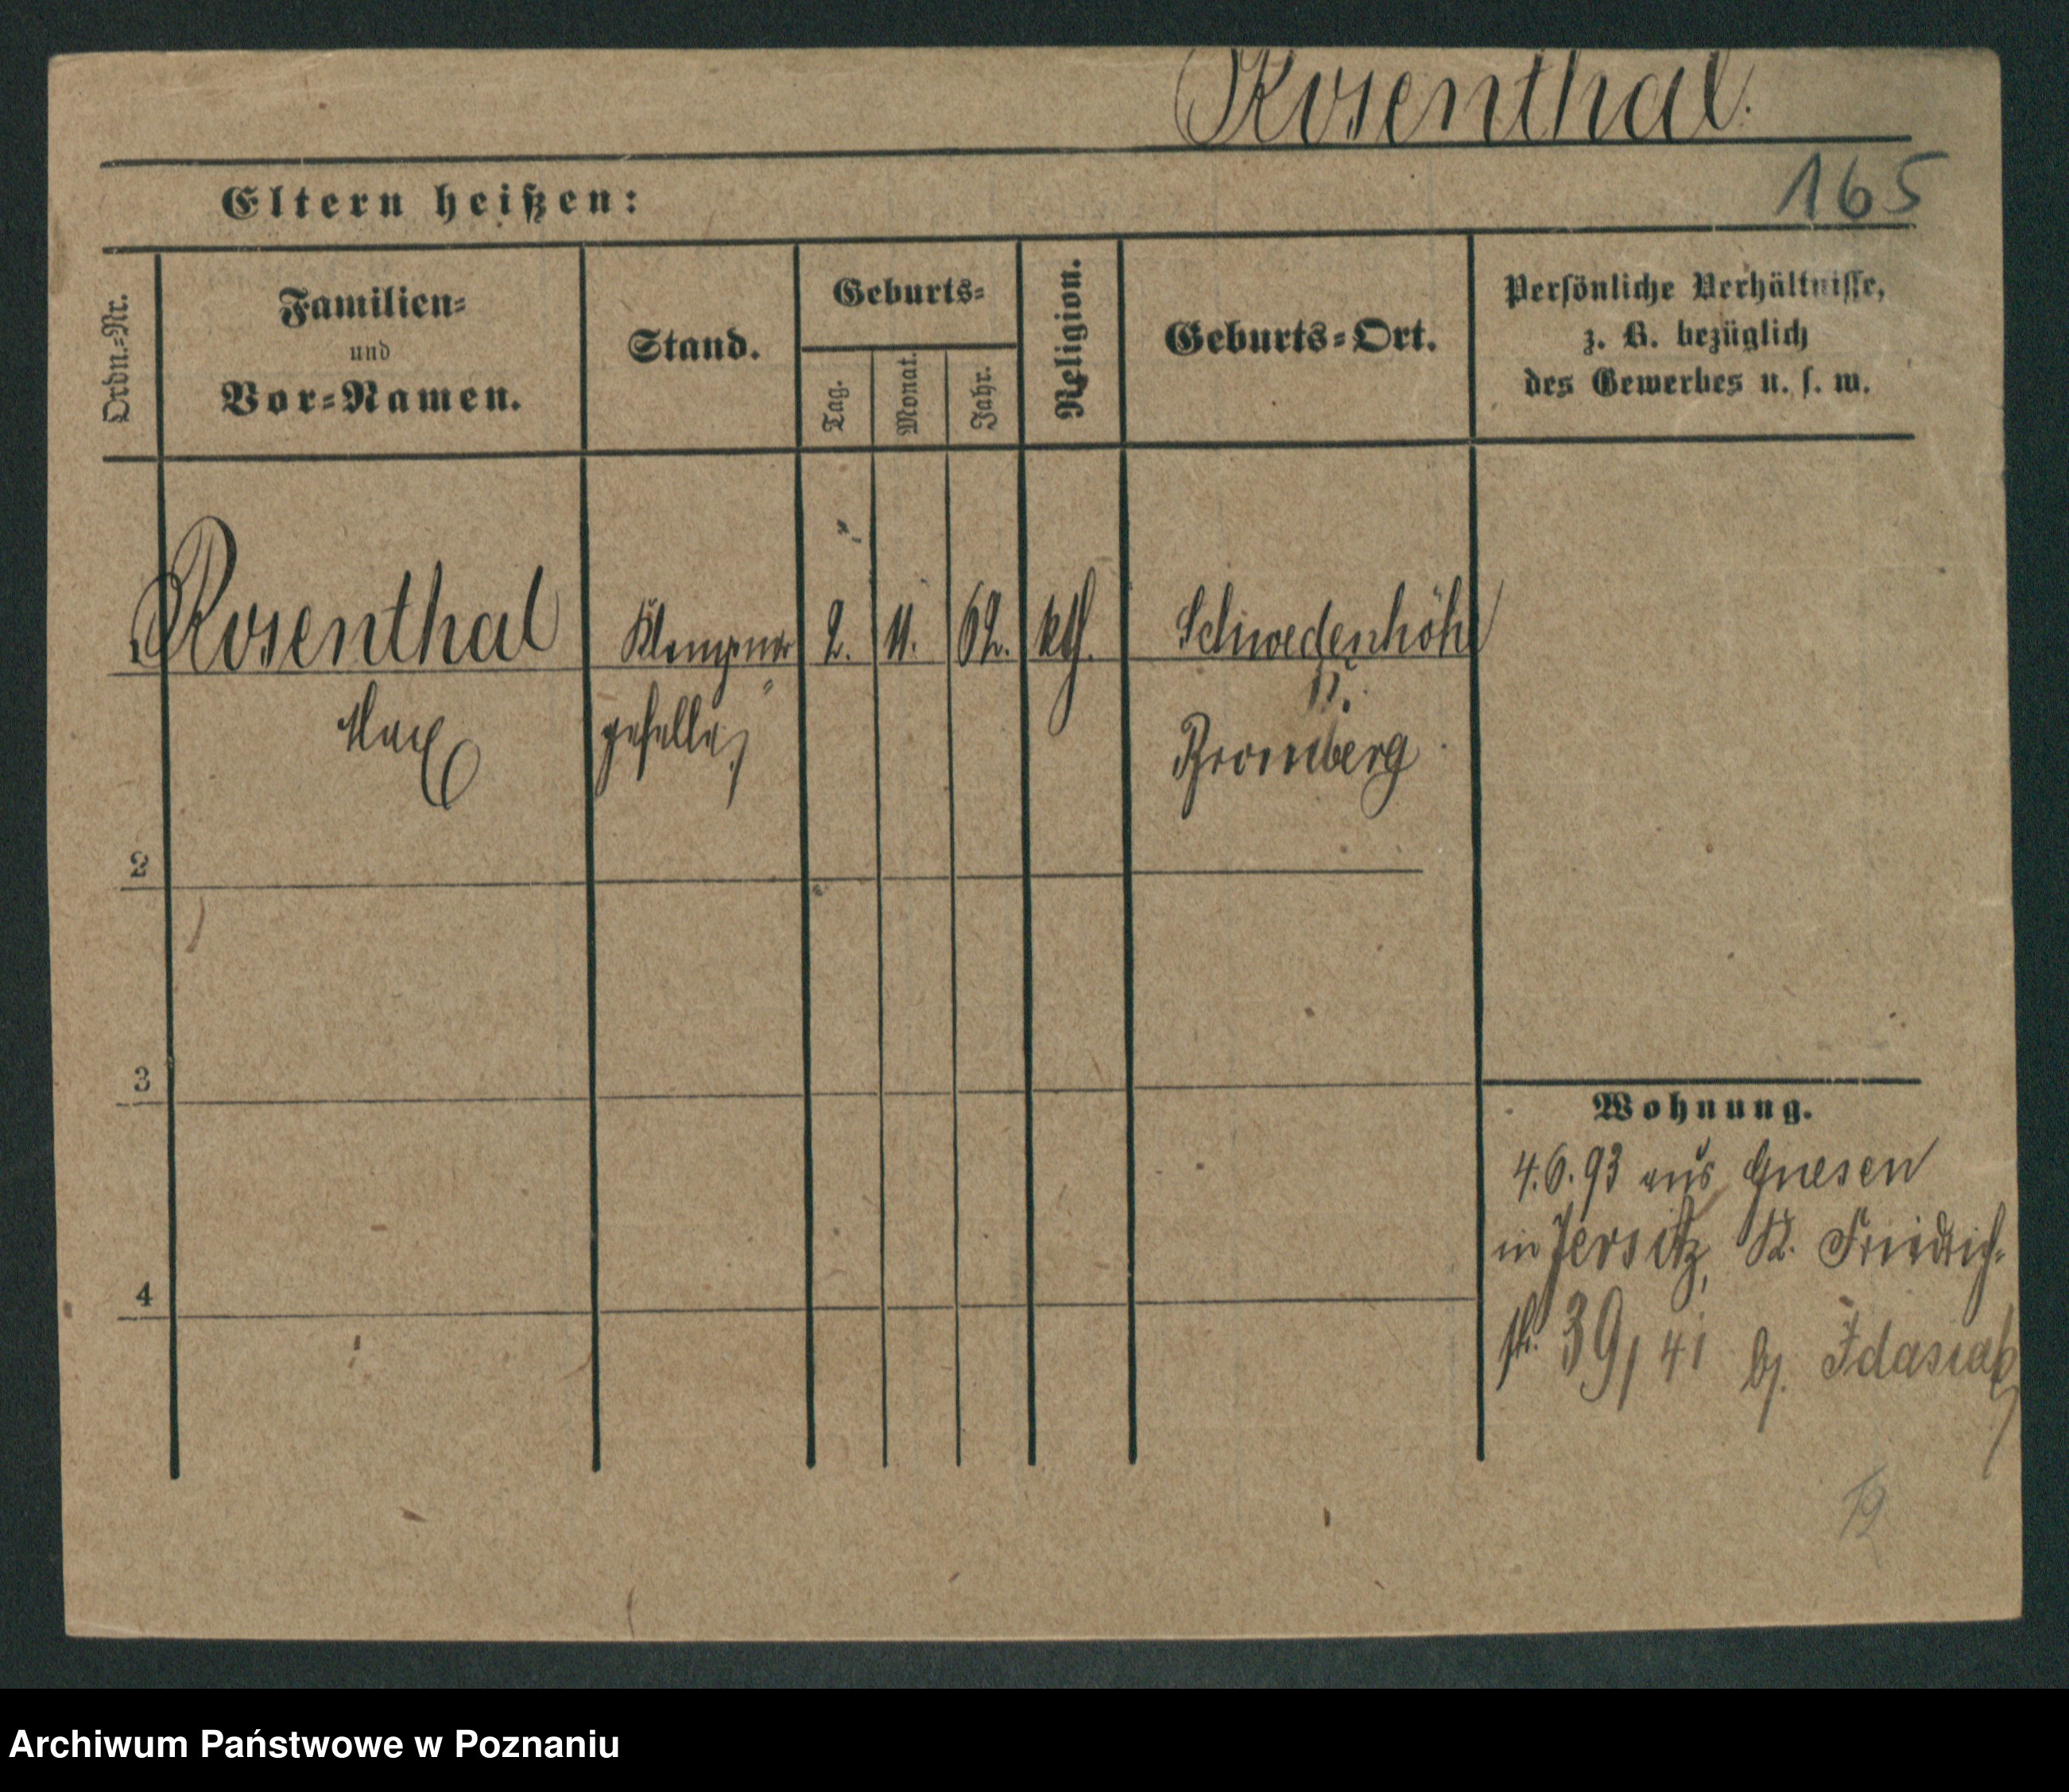 Rosenthal.
165
Eltern heißen:
Ordn.-Nr.
Familien-
und
Vor-Namen.
Stand.
Geburts-
Tag.
Monat.
Jahr.
Religion.
Geburts-Ort.
Persönliche Verhältnisse,
z. B. bezüglich
des Gewerbes u. s. w.
1 Rosenthal Klempner 2. 11. 62. kth. Schwedenhöhe
Max geselle
Bromberg
2
3
4
Wohnung.
4.6.93 aus Gnesen
in Jersitz, Kl. Friedrich-
str. 39/41 bj. Idasiak
Archiwum Państwowe w Poznaniu